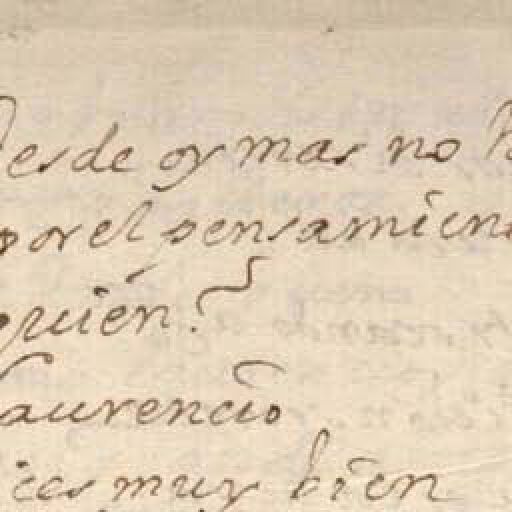 desde oy mas no
por el pensamien
quién?
Laurencio
ices muy bien